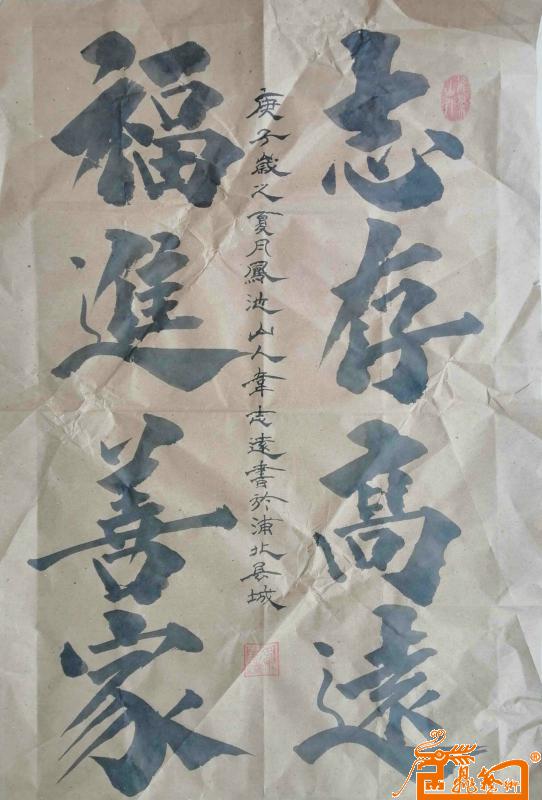 志存高遠
福進善家
庚子歲之夏月鳳池山人韋志遠書於浦北县城